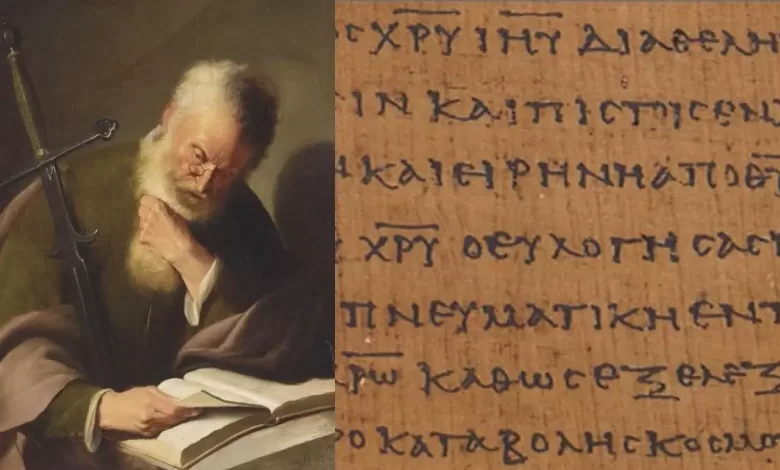 Ϲ Χ̅Ρ̅Υ̅ Ι̅Η̅Υ̅ ΔΙΑ ΘΕΛΗ
ΙΝ ΚΑΙ ΠΙϹΤΟΙϹ ΕΝ
ΚΑΙ ΕΙΡΗΝΗ ΑΠΟ Θ̅
Χ̅Ρ̅Υ̅ Ο ΕΥΛΟΓΗϹΑϹ
ΠΝΕΥΜΑΤΙΚΗ ΕΝ Τ
Χ̅Ρ̅Ω̅ ΚΑΘΩϹ ΕΞΕΛΕΞ
ΡΟ ΚΑΤΑΒΟΛΗϹ ΚΟϹΜΟ